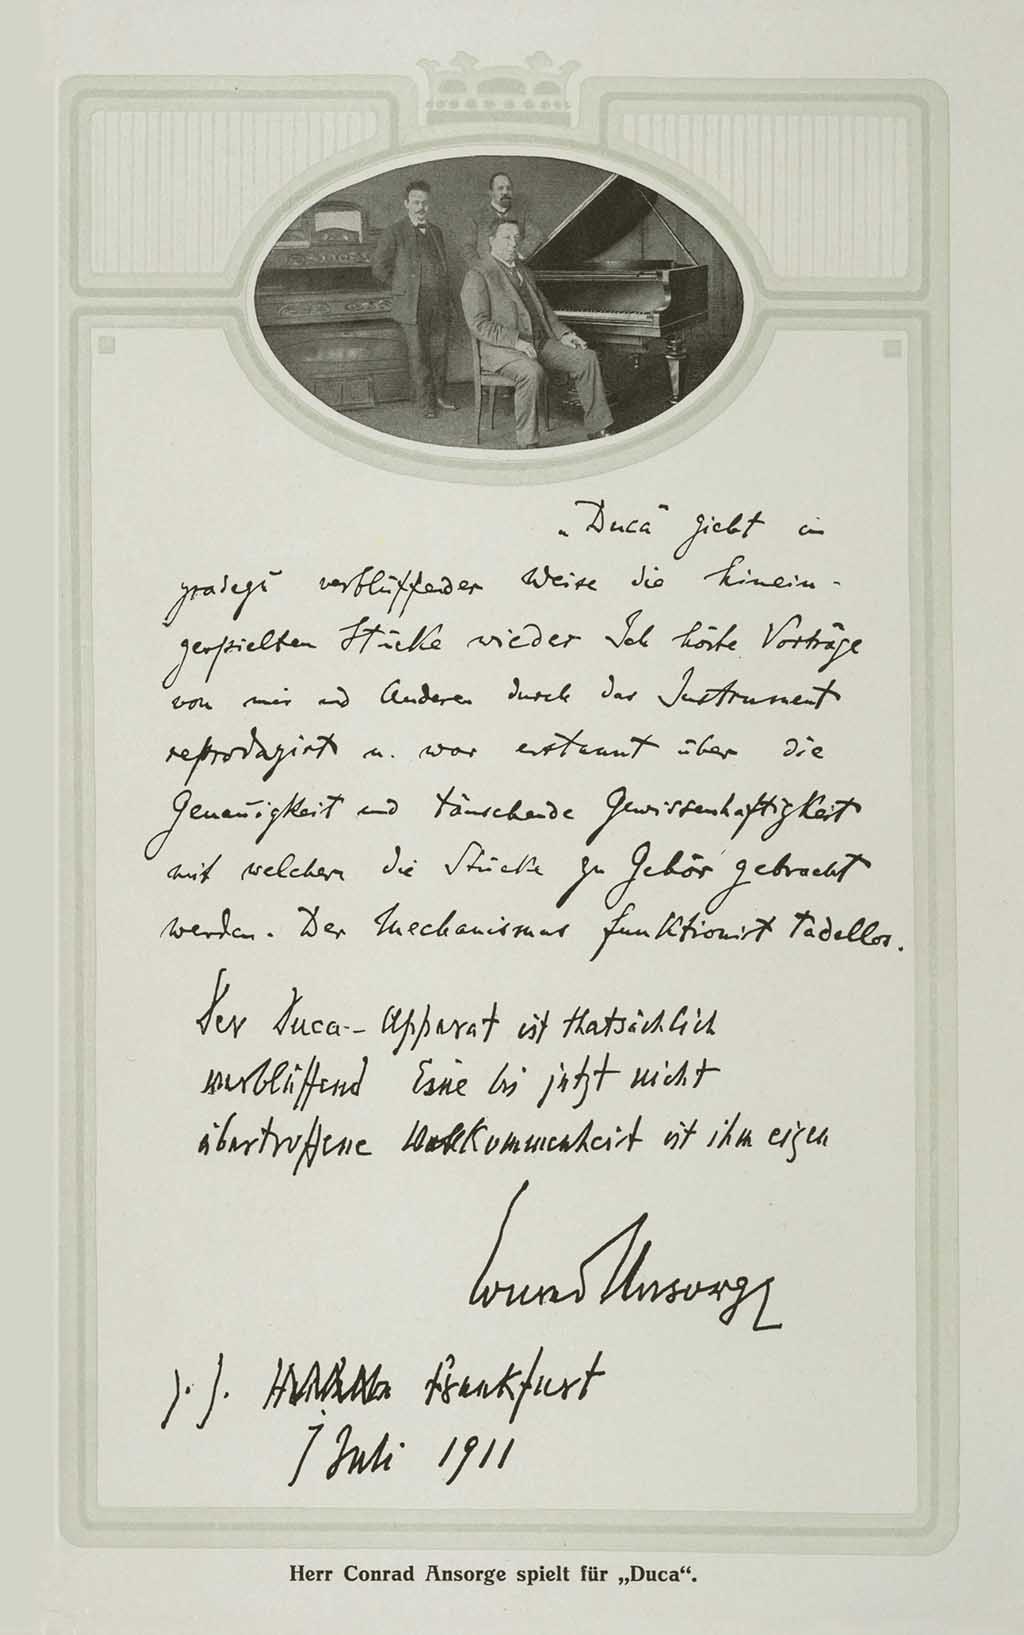 „Duca" giebt in
gradezu verblüffender Weise die hinein-
gespielten Stücke wieder Ich hörte Vorträge
von mir und Anderen durch das Instrument
reproduzirt u. war erstaunt über die
Genauigkeit und täuschende Gewissenhaftigkeit
mit welchen die Stücke zu Gehör gebracht
werden. Der Mechanismus funktionirt tadellos.
Der Duca-Apparat ist thatsächlich
verblüffend Eine bis jetzt nicht
übertroffene Vollkommenheit ist ihm eigen
Conrad Ansorge
Frankfurt
7 Juli 1911
Herr Conrad Ansorge spielt für „Duca“.